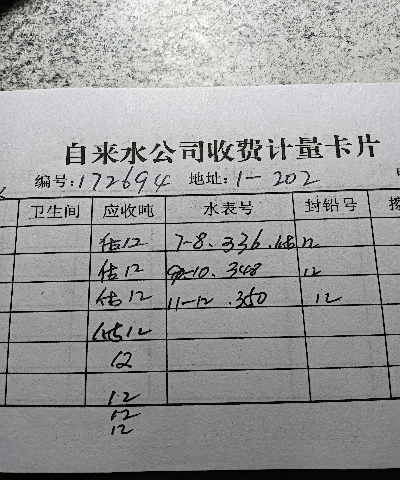 自来水公司收费计量卡片
编号:172694 地址:1-202
卫生间 应收吨 水表号 封铅号
估12 7-8.336. 12
估12 9-10.348 12
估12 11-12.350 12
估12
12
12
12
12